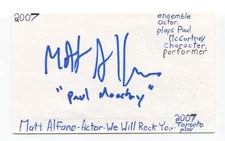 2007
ensemble
actor
plays Paul
McCartney
character
performer
Matt Alfano
"Paul McCartney"
2007
Toronto
Matt Alfano-Actor-We Will Rock You-play